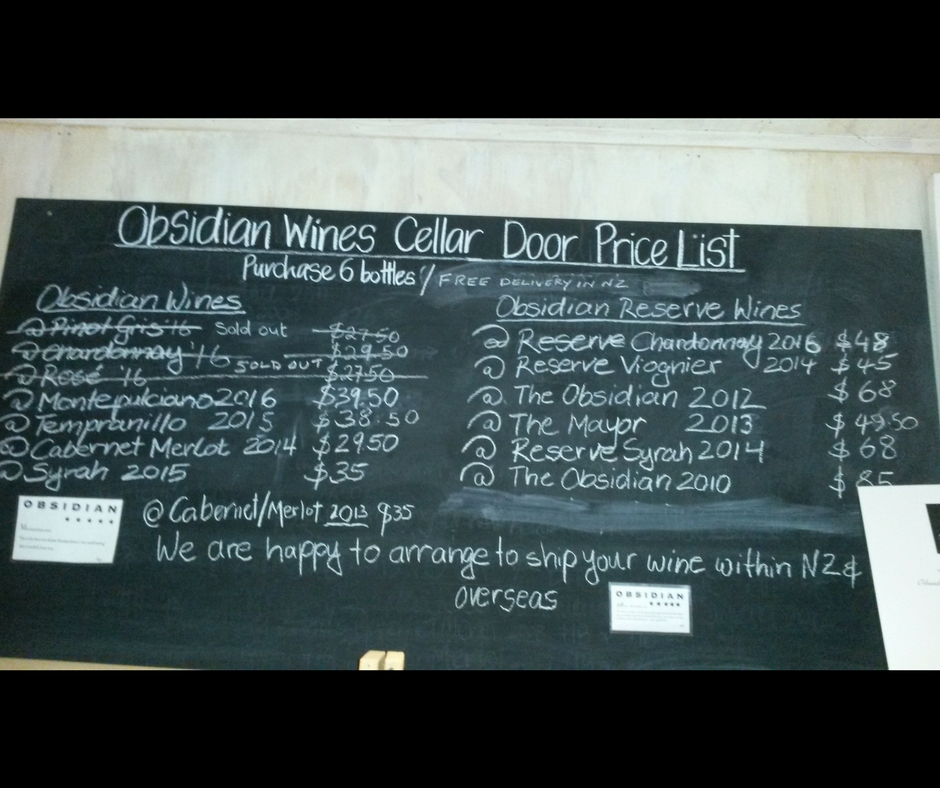 Obsidian Wines Cellar Door Price List
Purchase 6 bottles / FREE DELIVERY IN NZ
Obsidian Wines
@ Pinot Gris '16 Sold out $27.50
@ Chardonnay '16 SOLD OUT $29.50
@ Rosé '16 $27.50
@ Montepulciano 2016 $39.50
@ Tempranillo 2015 $38.50
@ Cabernet Merlot 2014 $29.50
@ Syrah 2015 $35
@ Cabernet/Merlot 2013 $35
Obsidian Reserve Wines
@ Reserve Chardonnay 2016 $48
@ Reserve Viognier 2014 $45
@ The Obsidian 2012 $68
@ The Mayor 2013 $49.50
@ Reserve Syrah 2014 $68
@ The Obsidian 2010 $85
We are happy to arrange to ship your wine within NZ &
overseas
OBSIDIAN
OBSIDIAN